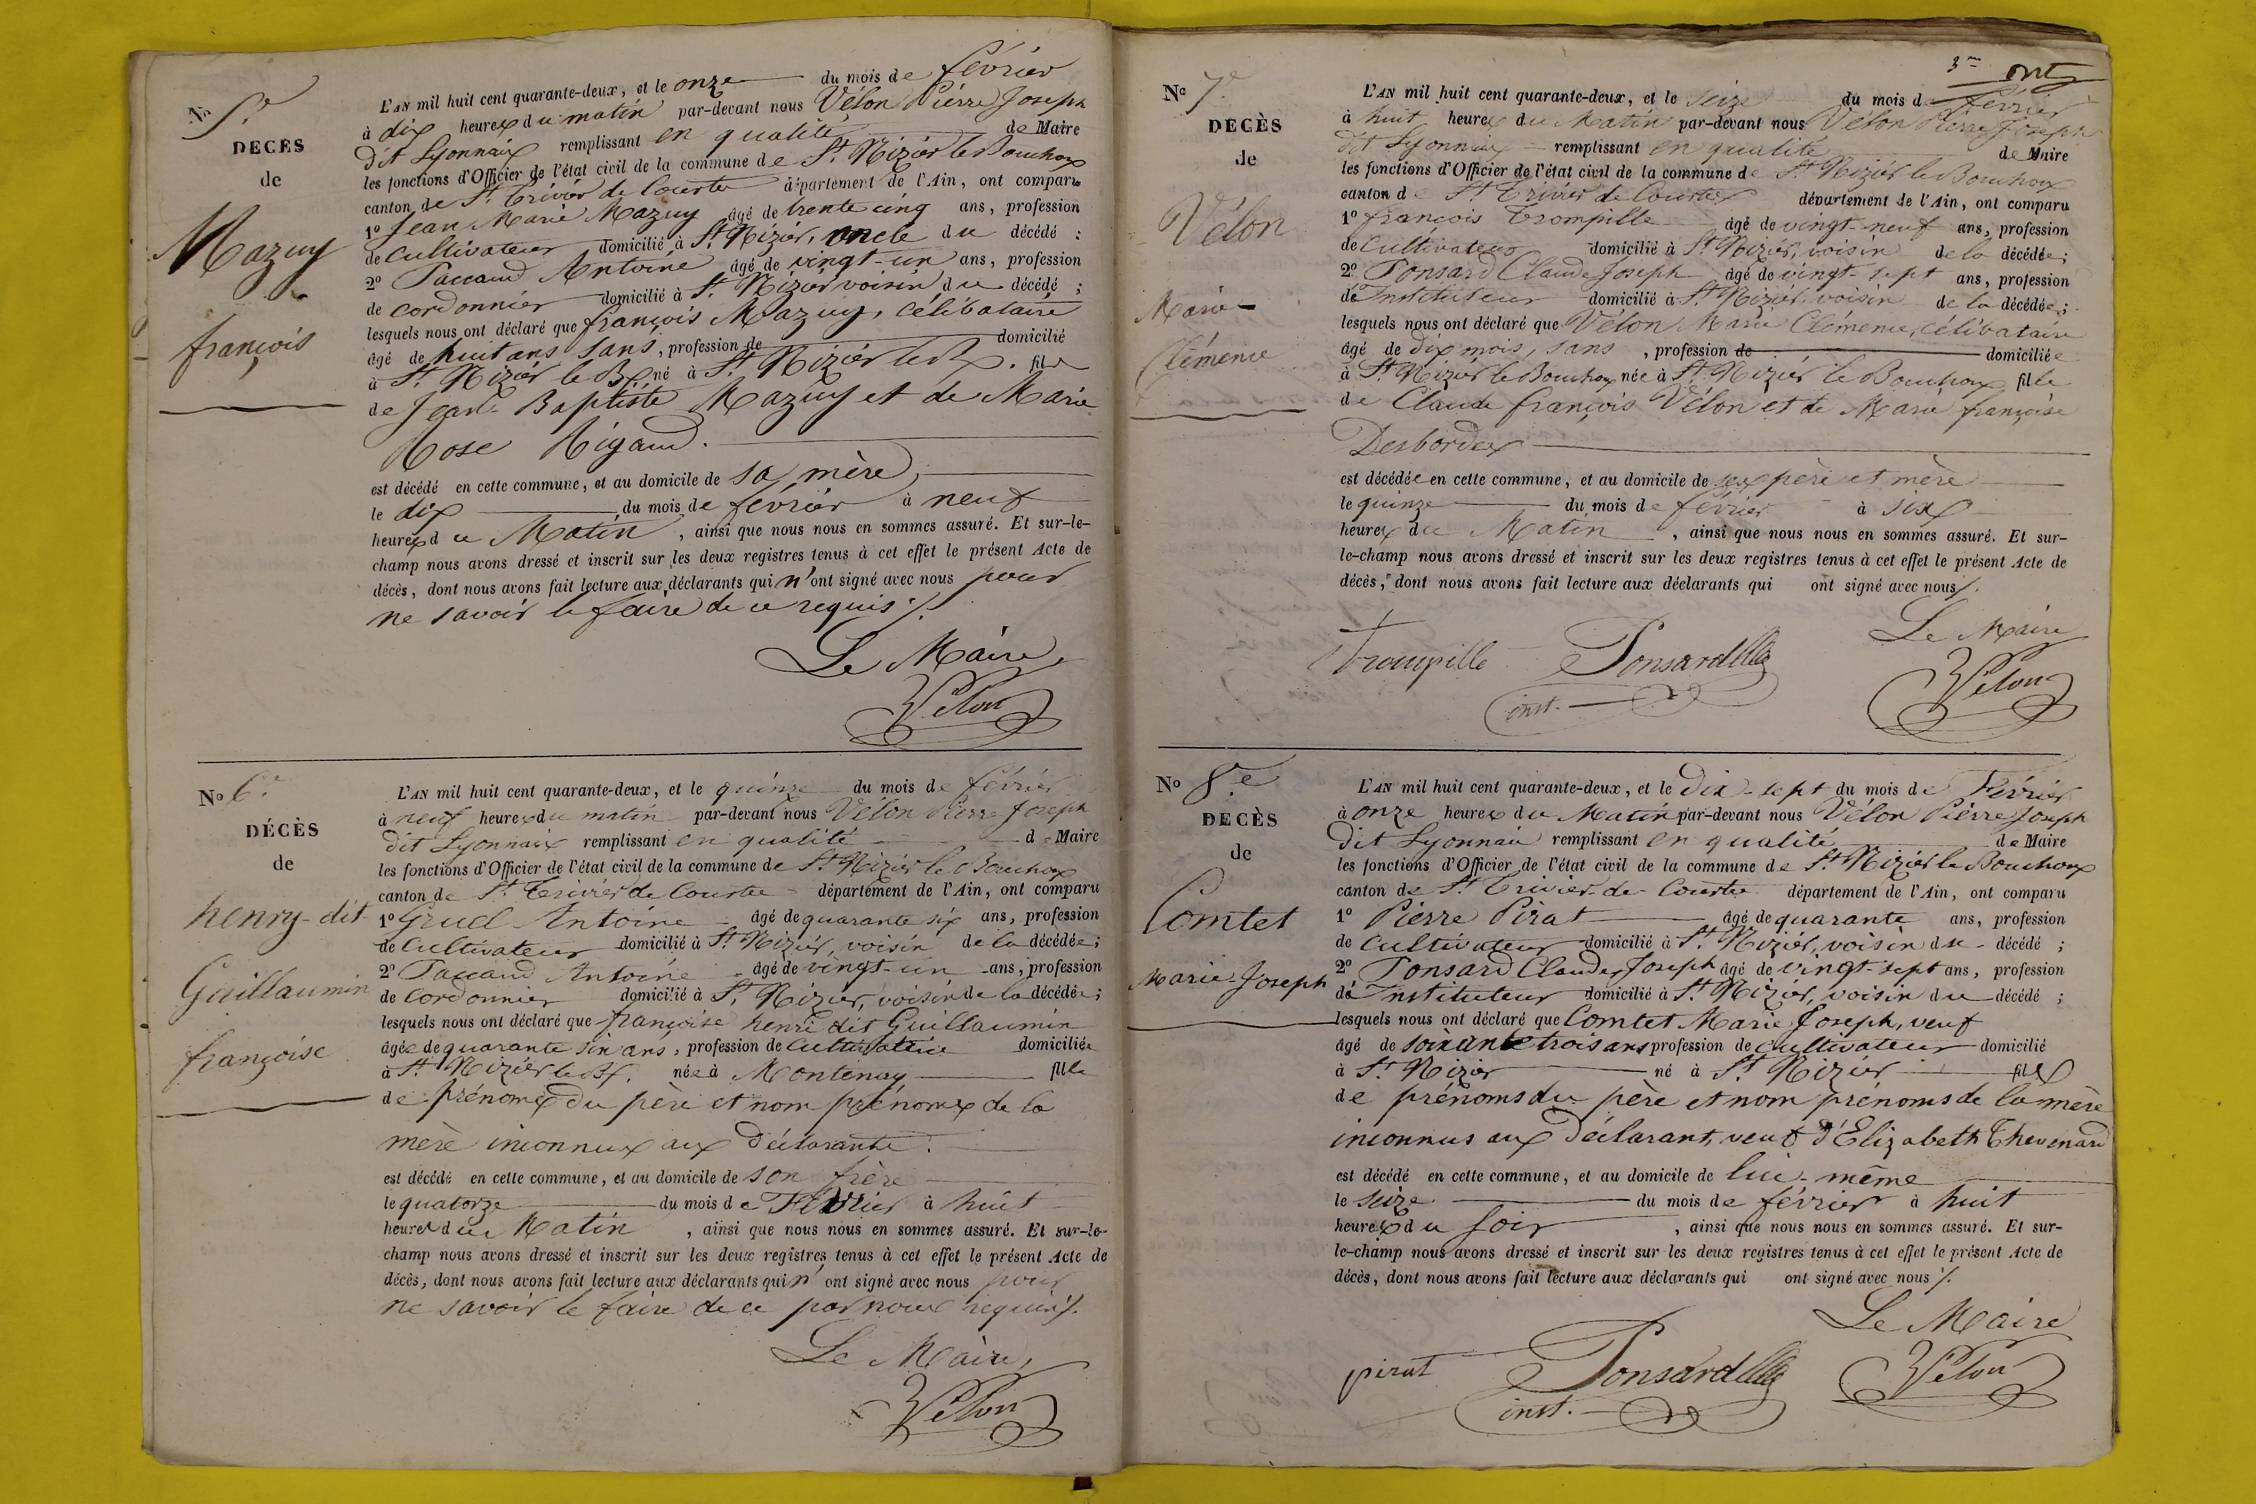 No 5.e
DÉCÈS
de
Mazuy
françois
L'AN mil huit cent quarante-deux, et le onze du mois de février
à dix heures du matin par-devant nous Vélon Pierre Joseph
dit Lyonnaix remplissant en qualité de Maire
les fonctions d'Officier de l'état civil de la commune de St. Nizier le Bouchoux
canton de St. Trivier de Courtes département de l'Ain, ont comparu
1o Jean Marie Mazuy âgé de trente cinq ans, profession
de Cultivateur domicilié à St. Nizier, oncle du décédé ;
2o Paccaud Antoine âgé de vingt-un ans, profession
de cordonnier domicilié à St. Nizier voisin du décédé ;
lesquels nous ont déclaré que françois Mazuy, célibataire
âgé de huit ans sans, profession de domicilié
à St. Nizier le Bx né à St. Nizier le Bx. fils
de Jean-Baptiste Mazuy et de Marie
Rose Rigaud.
est décédé en cette commune, et au domicile de sa mère,
le dix du mois de février à neuf
heures du Matin, ainsi que nous nous en sommes assuré. Et sur-le-
champ nous avons dressé et inscrit sur les deux registres tenus à cet effet le présent Acte de
décès, dont nous avons fait lecture aux déclarants qui n'ont signé avec nous pour
ne savoir le faire de ce requis ./.
Le Maire,
Vélon
No 6.e
DÉCÈS
de
henry-dit
Guillaumin
françoise
L'AN mil huit cent quarante-deux, et le quinze du mois de février
à neuf heures du matin par-devant nous Vélon Pierre Joseph
dit Lyonnaix remplissant en qualité de Maire
les fonctions d'Officier de l'état civil de la commune de St. Nizier le Bouchoux
canton de St. Trivier de Courtes département de l'Ain, ont comparu
1o Gruel Antoine âgé de quarante six ans, profession
de Cultivateur domicilié à St. Nizier, voisin de la décédée ;
2o Paccaud Antoine âgé de vingt-un ans, profession
de cordonnier domicilié à St. Nizier, voisin de la décédée ;
lesquels nous ont déclaré que françoise henri dit Guillaumin
âgée de quarante six ans, profession de Cultivatrice domiciliée
à St. Nizier le Bx. née à Montenay fille
de prénomx du père et nom prénomx de la
mère inconnux aux déclarants.
est décédé en cette commune, et au domicile de son frère
le quatorze du mois de Février à huit
heures du Matin, ainsi que nous nous en sommes assuré. Et sur-le-
champ nous avons dressé et inscrit sur les deux registres tenus à cet effet le présent Acte de
décès, dont nous avons fait lecture aux déclarants qui n'ont signé avec nous pour
ne savoir le faire de ce par nous requis ./.
Le Maire,
Vélon
No 7.e
DÉCÈS
de
Vélon
Marie-
Clémence
L'AN mil huit cent quarante-deux, et le seize du mois de février
à huit heures du Matin par-devant nous Vélon Pierre Joseph
dit Lyonnaix remplissant en qualité de Maire
les fonctions d'Officier de l'état civil de la commune de St. Nizier le Bouchoux
canton de St. Trivier de Courtes département de l'Ain, ont comparu
1o françois Trompille âgé de vingt-neuf ans, profession
de Cultivateur domicilié à St. Nizier, voisin de la décédée ;
2o Ponsard Claude Joseph âgé de vingt-sept ans, profession
de Instituteur domicilié à St. Nizier, voisin de la décédée ;
lesquels nous ont déclaré que Vélon Marie Clémence, célibataire
âgé de dix mois, sans, profession de domiciliée
à St. Nizier le Bouchoux née à St. Nizier le Bouchoux fille
de Claude françois Vélon et de Marie françoise
Desbordex
est décédée en cette commune, et au domicile de sex père et mère
le quinze du mois de février à six
heures du Matin, ainsi que nous nous en sommes assuré. Et sur-
le-champ nous avons dressé et inscrit sur les deux registres tenus à cet effet le présent Acte de
décès, dont nous avons fait lecture aux déclarants qui ont signé avec nous ./.
Le Maire
Trompille Ponsard inst. Vélon
No 8.e
DÉCÈS
de
Comtet
Marie-Joseph
L'AN mil huit cent quarante-deux, et le Dix-sept du mois de Février
à onze heures du Matin par-devant nous Vélon Pierre Joseph
dit Lyonnaix remplissant en qualité de Maire
les fonctions d'Officier de l'état civil de la commune de St. Nizier le Bouchoux
canton de St. Trivier de Courtes département de l'Ain, ont comparu
1o Pierre Pirat âgé de quarante ans, profession
de Cultivateur domicilié à St. Nizier, voisin du décédé ;
2o Ponsard Claude Joseph âgé de vingt-sept ans, profession
de Instituteur domicilié à St. Nizier, voisin du décédé ;
lesquels nous ont déclaré que Comtet Marie Joseph, veuf
âgé de soixante trois ans profession de Cultivateur domicilié
à St. Nizier né à St. Nizier fils
de prénoms du père et nom prénoms de la mère
inconnus aux déclarant, veuf d'Elizabeth Thevenard
est décédé en cette commune, et au domicile de lui-même
le seize du mois de février à huit
heures du soir, ainsi que nous nous en sommes assuré. Et sur-
le-champ nous avons dressé et inscrit sur les deux registres tenus à cet effet le présent Acte de
décès, dont nous avons fait lecture aux déclarants qui ont signé avec nous ./.
Le Maire
pirat Ponsard inst. Vélon